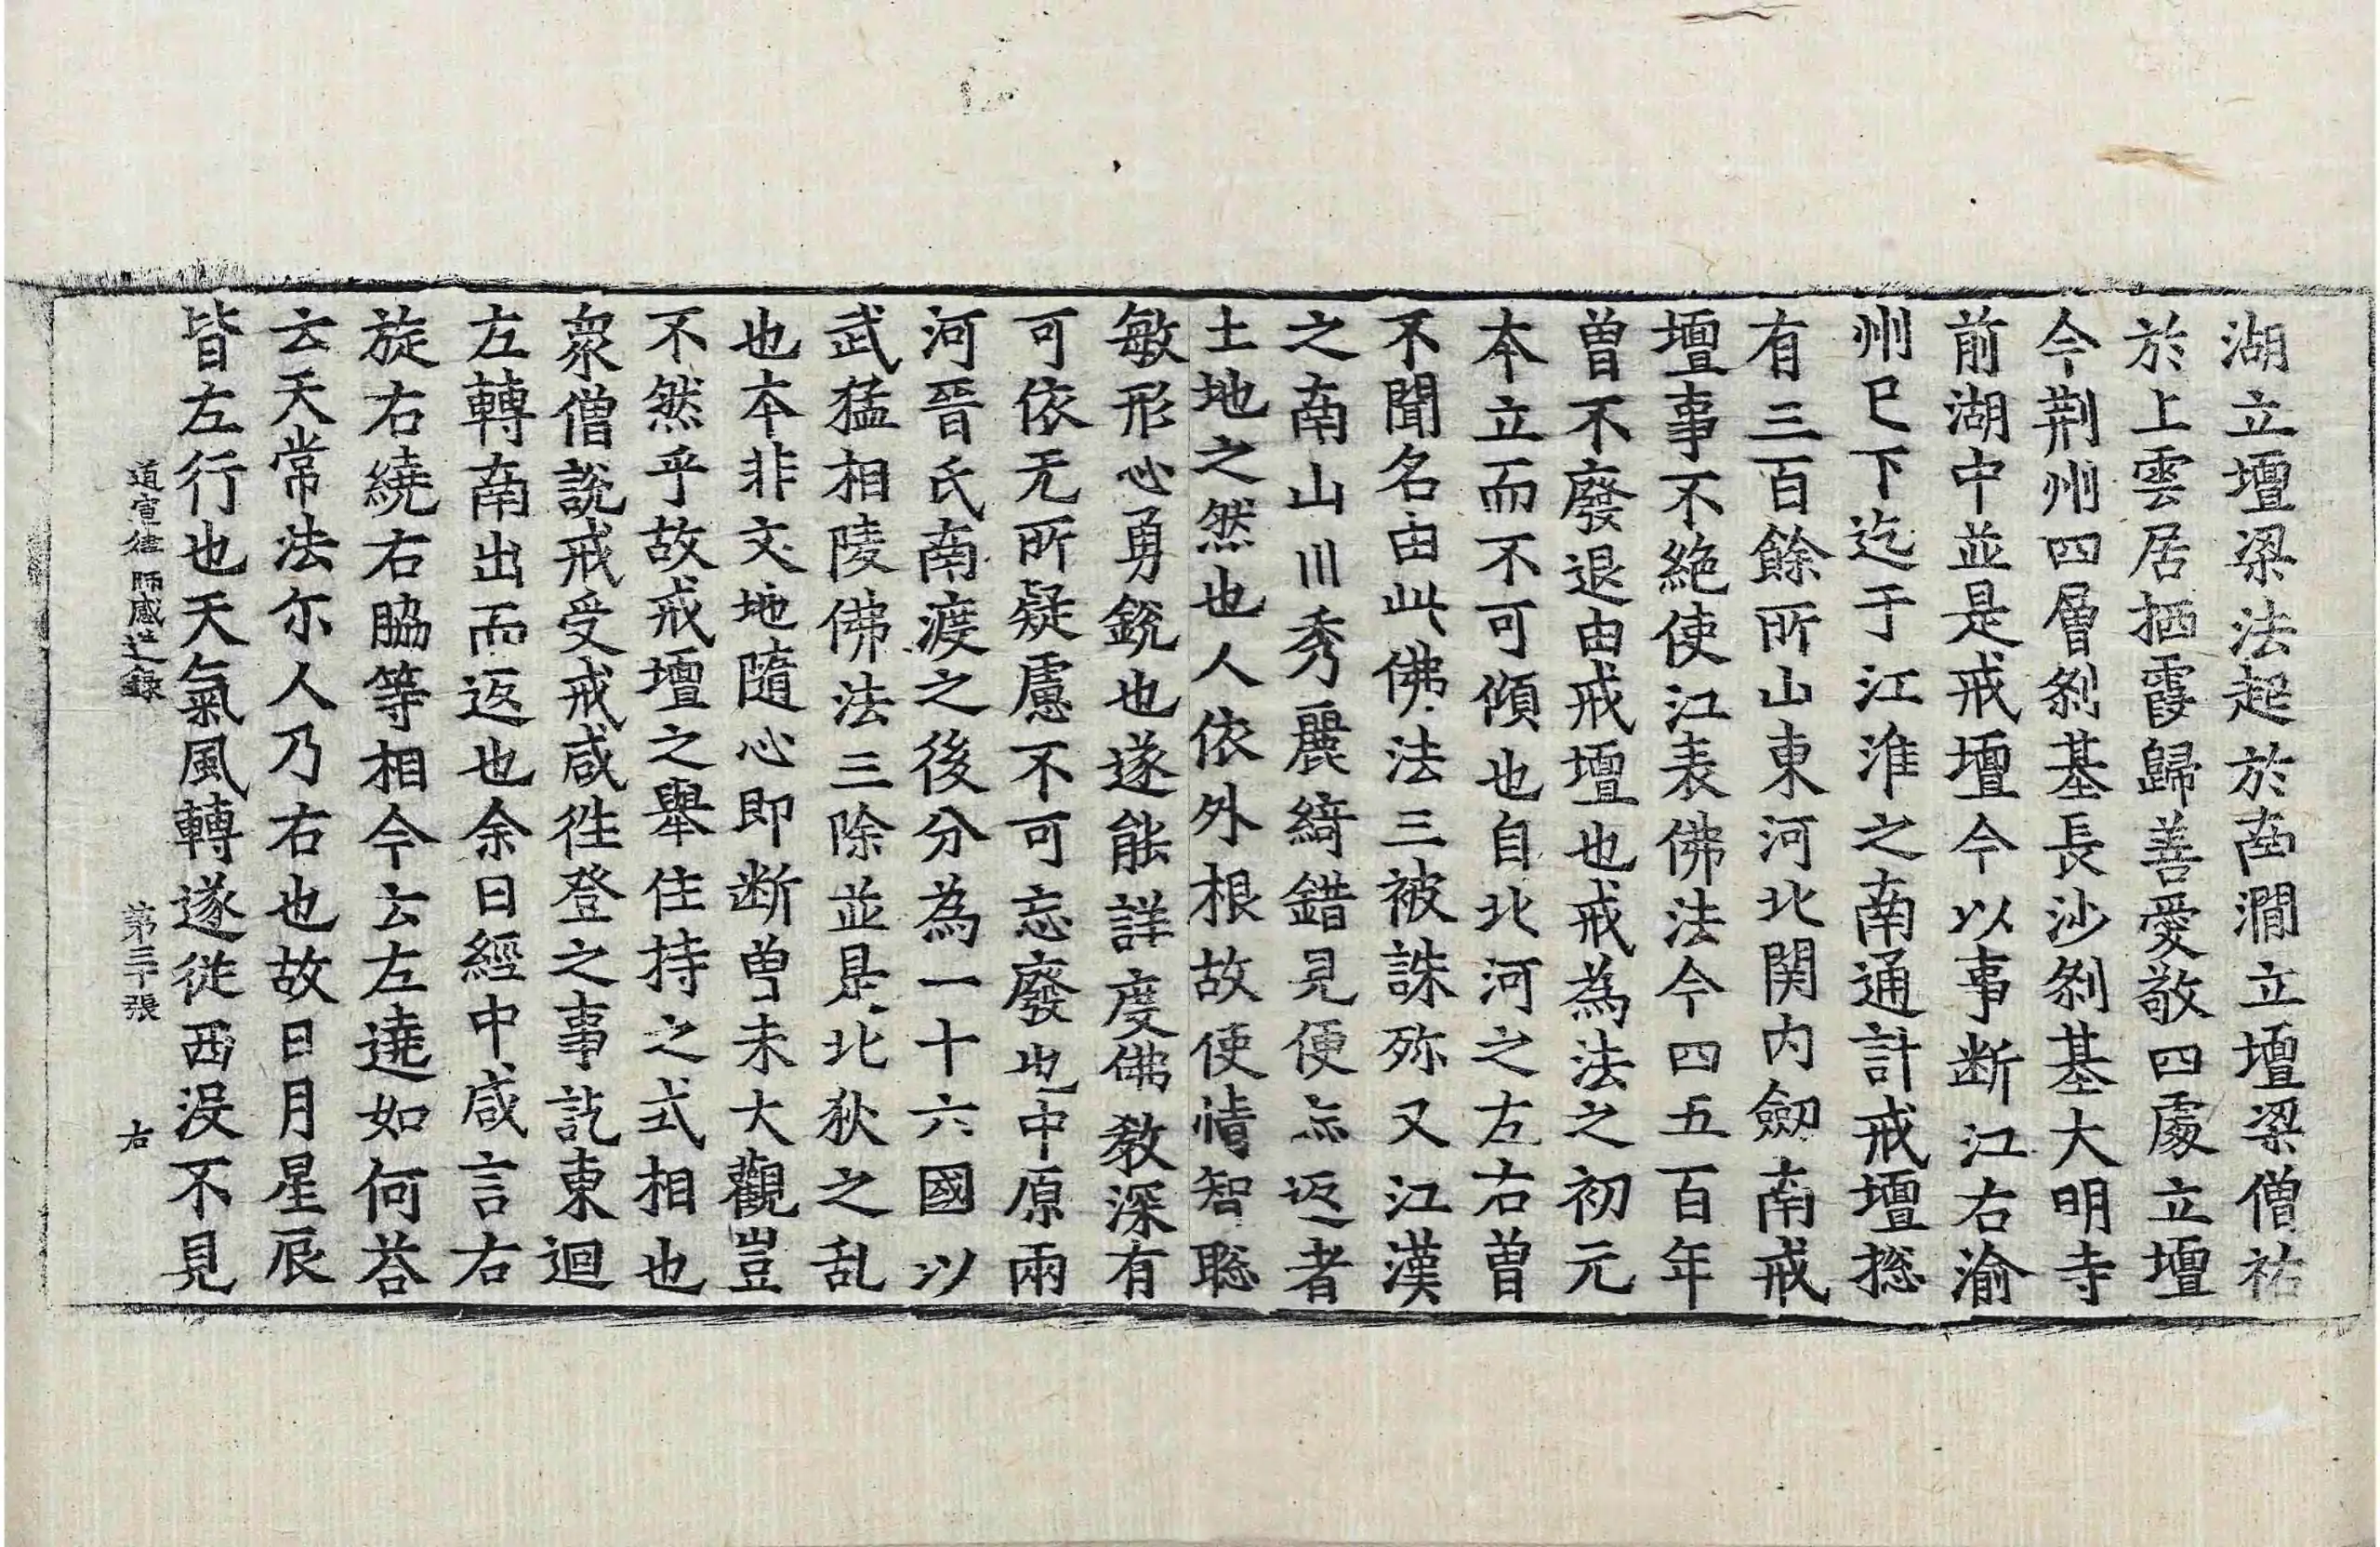 湖立壇梁法起於南澗立壇梁僧祐
於上雲居栖霞歸善愛敬四處立壇
今荆州四層剎基長沙剎基大明寺
前湖中並是戒壇今以事断江右渝
州已下迄于江淮之南通計戒壇捴
有三百餘所山東河北関内劔南戒
壇事不絶使江表佛法今四五百年
曽不廢退由戒壇也戒為法之初元
本立而不可傾也自北河之左右曽
不聞名由此佛法三被誅殄又江漢
之南山川秀麗綺錯見便忘返者
土地之然也人依外根故使情智聡
敏形心勇銳也遂能詳度佛教深有
可依无所疑慮不可忘廢也中原兩
河晉氏南渡之後分為一十六國以
武猛相陵佛法三除並是北狄之乱
也本非文地隨心即断曽未大觀豈
不然乎故戒壇之舉住持之式相也
衆僧說戒受戒咸往登之事訖東迴
左轉南出而返也余曰經中咸言右
旋右繞右脇等相今云左遶如何荅
云天常法尓人乃右也故日月星辰
皆左行也天氣風轉遂從西沒不見
道宣律師感通録 第三十張 右